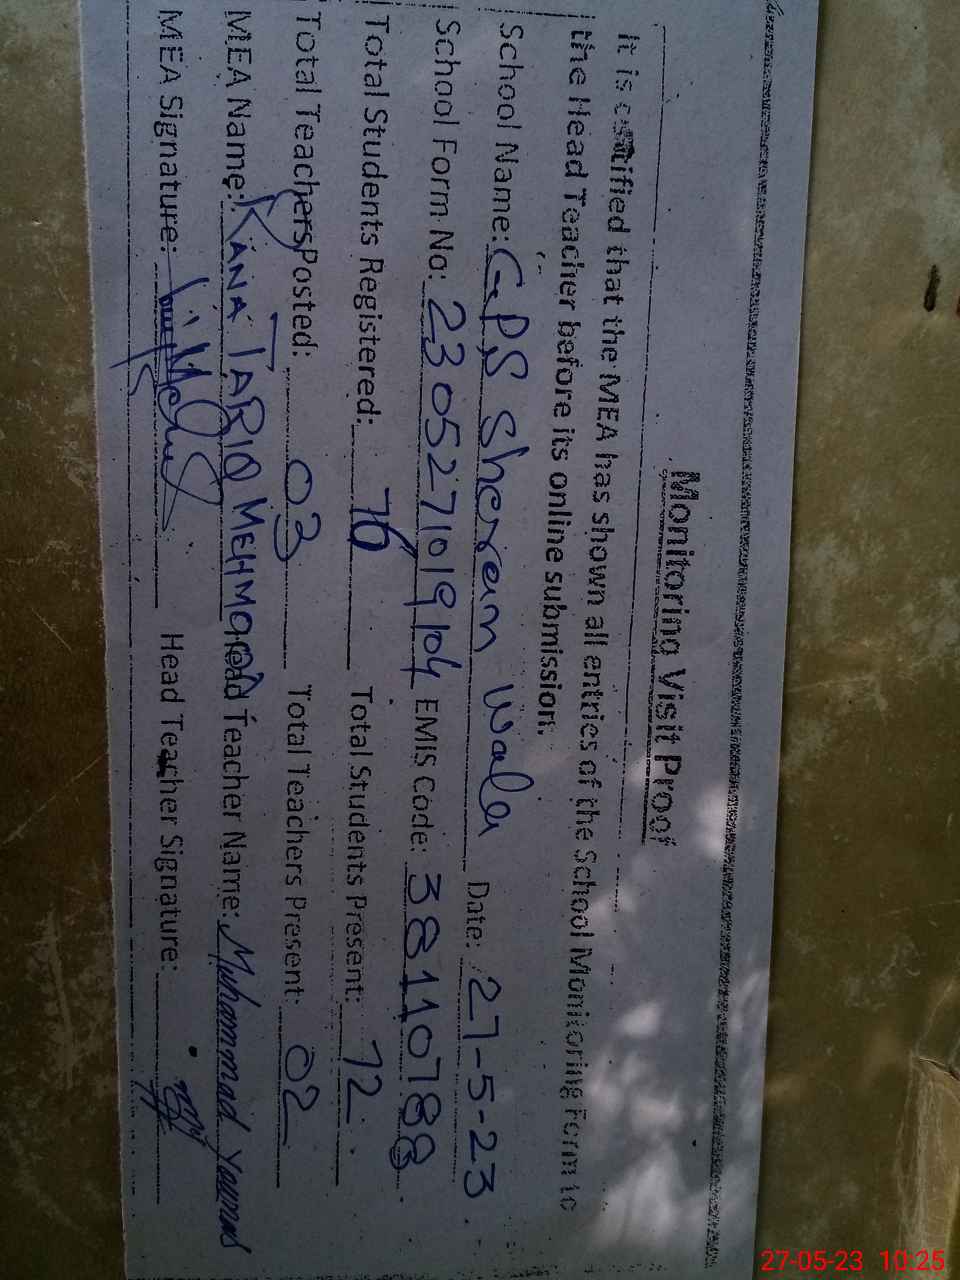 Monitoring Visit Proof
It is certified that the MEA has shown all entries of the School Monitoring Form to
the Head Teacher before its online submission.
School Name: GPS Sheram Wala Date: 27-5-23
School Form No: 2305271019104 EMIS Code: 38110788
Total Students Registered: 76 Total Students Present: 72
Total Teachers Posted: 03 Total Teachers Present: 02
MEA Name: RANA TARIQ MEHMOOD Head Teacher Name: Muhammad Younas
MEA Signature: Head Teacher Signature:
27-05-23 10:25